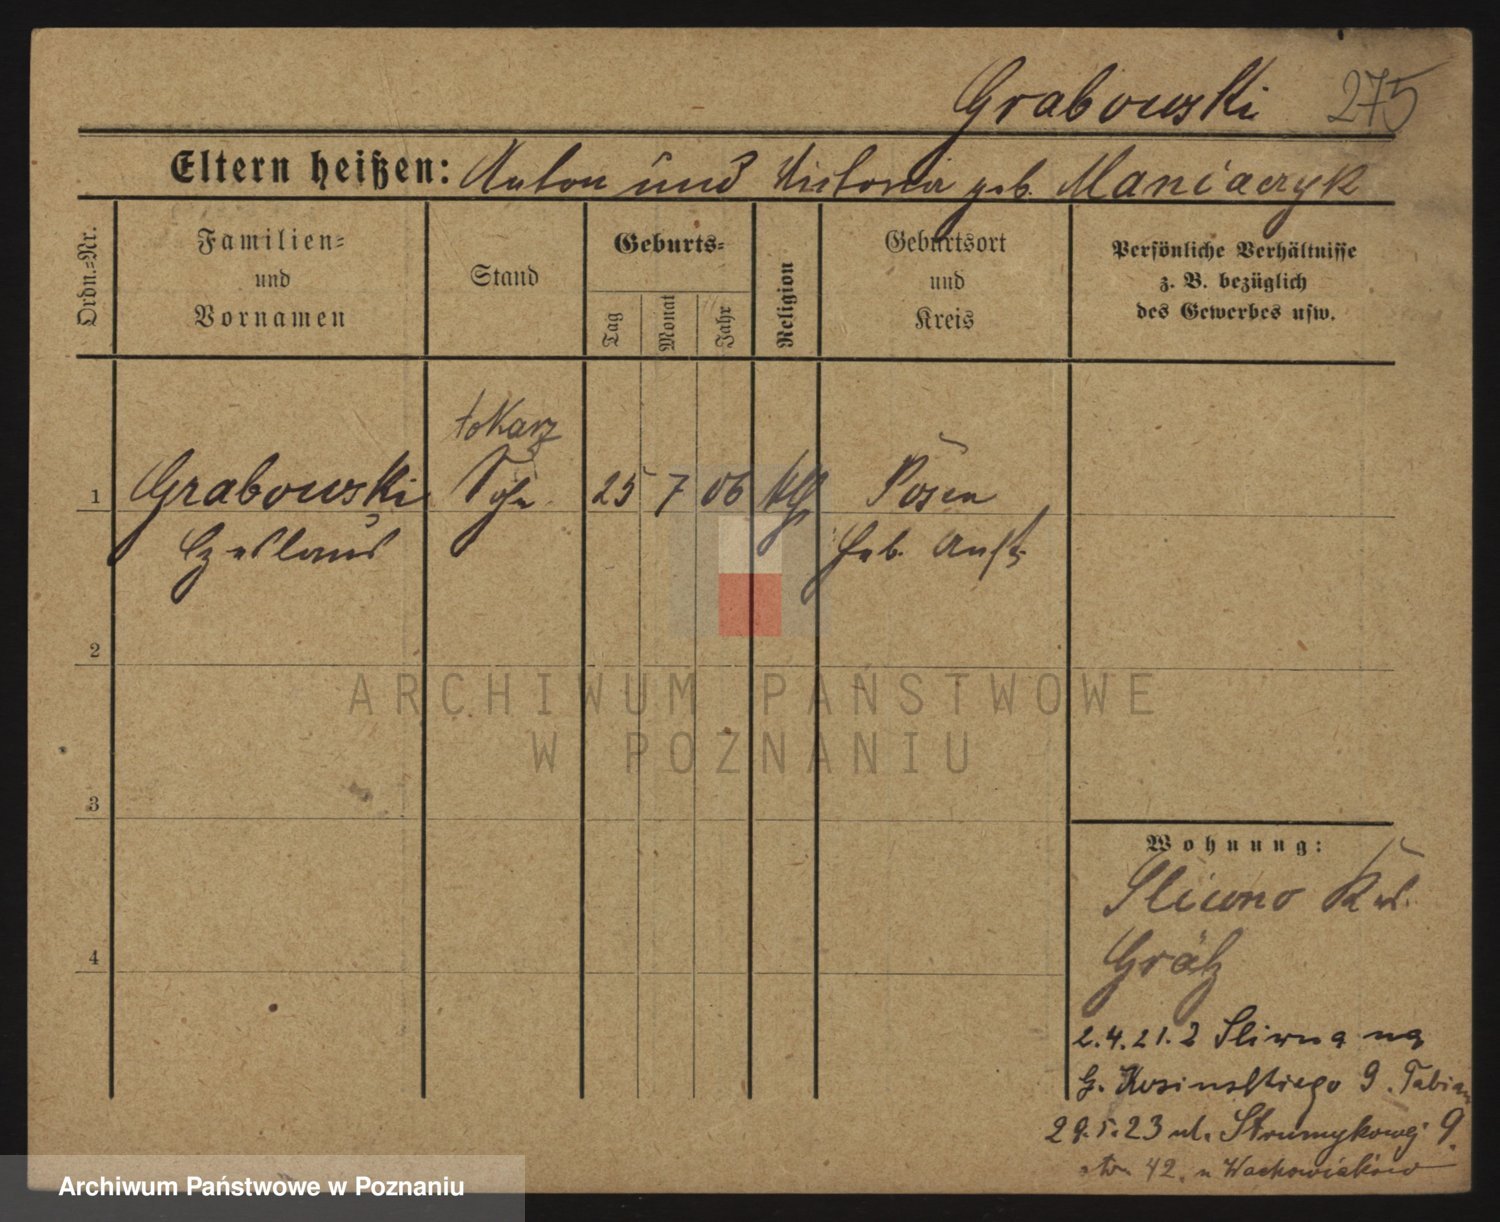 Grabowski 275
Eltern heißen: Anton und Victoria geb. Maniaczyk
Ordn.=Nr.
Familien=
und
Vornamen
Stand
Geburts=
Tag
Monat
Jahr
Religion
Geburtsort
und
Kreis
Persönliche Verhältnisse
z. B. bezüglich
des Gewerbes usw.
tokarz
1 Grabowski Sohn 25 7 06 kth Posen
Czeslaus Geb. Anst.
2
3
4
Wohnung:
Sliwno Krs.
Grätz
2.4.21. z Sliwna na
G. Kosinskiego 9.
29.5.23 ul. Strumykowej 9.
42. u Wachowiaków
ARCHIWUM PAŃSTWOWE
W POZNANIU
Archiwum Państwowe w Poznaniu